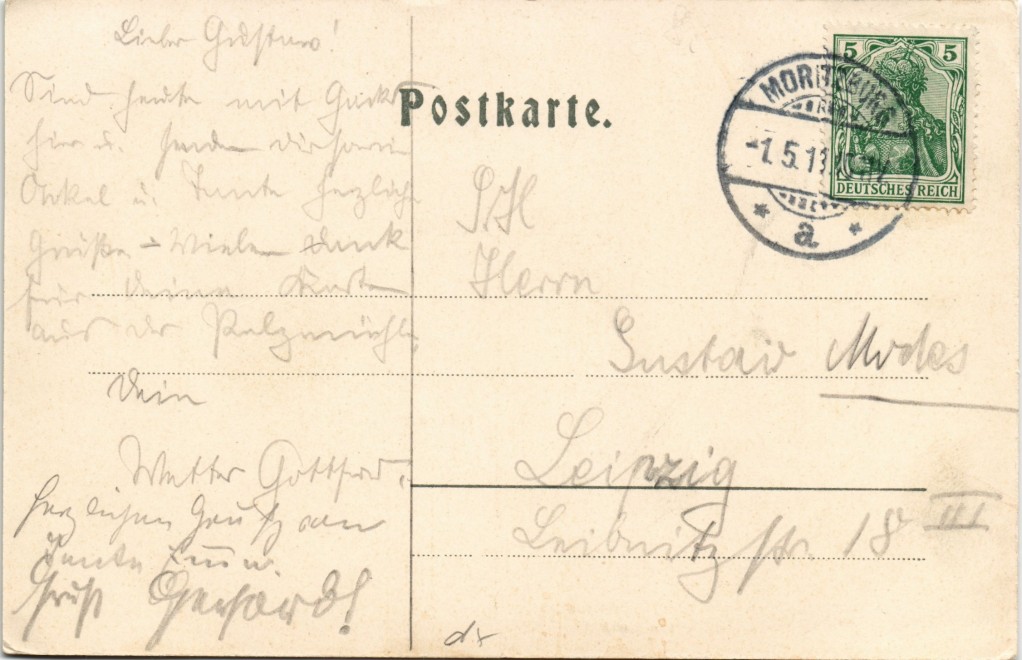 Lieber Gustav!
Sind heute mit
hier u. senden dir sowie
Onkel u. Tante herzliche
Grüße – Vielen Dank
für deine Karte
aus der Palzmühle,
Dein
Vetter Gottfried.
Herzlichen Gruß an
Tante Emma.
Gruß Gerhard!
Postkarte.
5 5
DEUTSCHES REICH
MORITZBURG
-1.5.11.
* a *
S. H.
Herrn
Gustav Modes
Leipzig
Leibnitzstr. 18 III